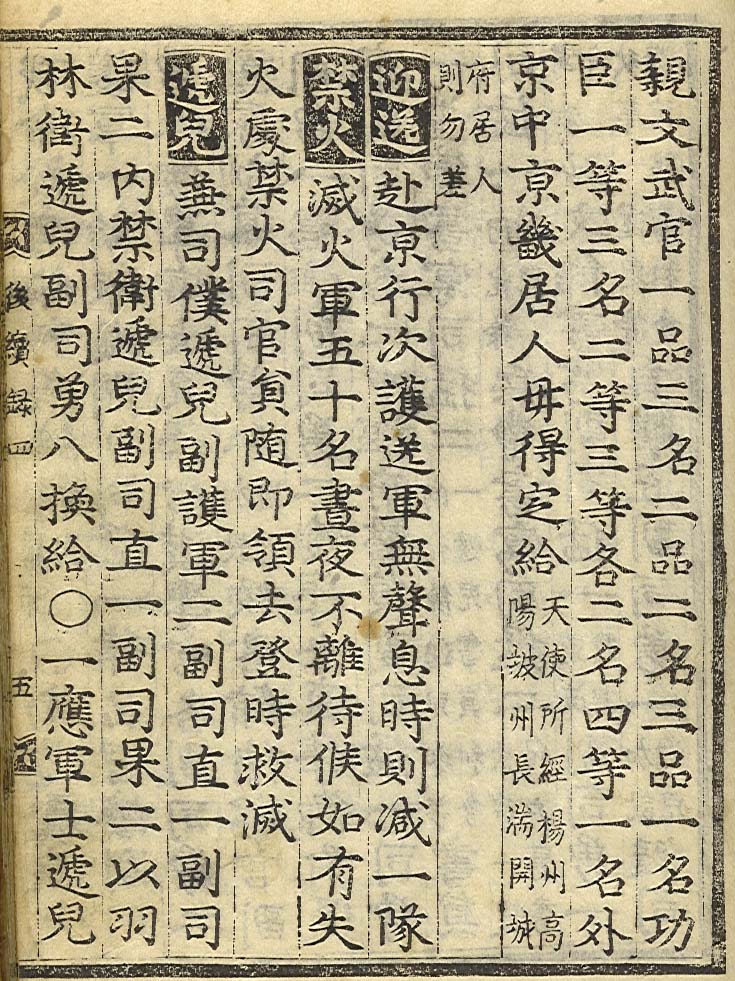 親文武官一品三名二品二名三品一名功
臣一等三名二等三等各二名四等一名外
京中京畿居人毋得定給天使所經楊州高
陽坡州長湍開城
府居人
則勿差
迎送 赴京行次護送軍無聲息時則减一隊
禁火 滅火軍五十名晝夜不離待候如有失
火處禁火司官貟随即領去登時救滅
遞兒 兼司僕遞兒副護軍二副司直一副司
果二內禁衛遞兒副司直一副司果二以羽
林衛遞兒副司勇八換給○一應軍士遞兒
後續録四 五